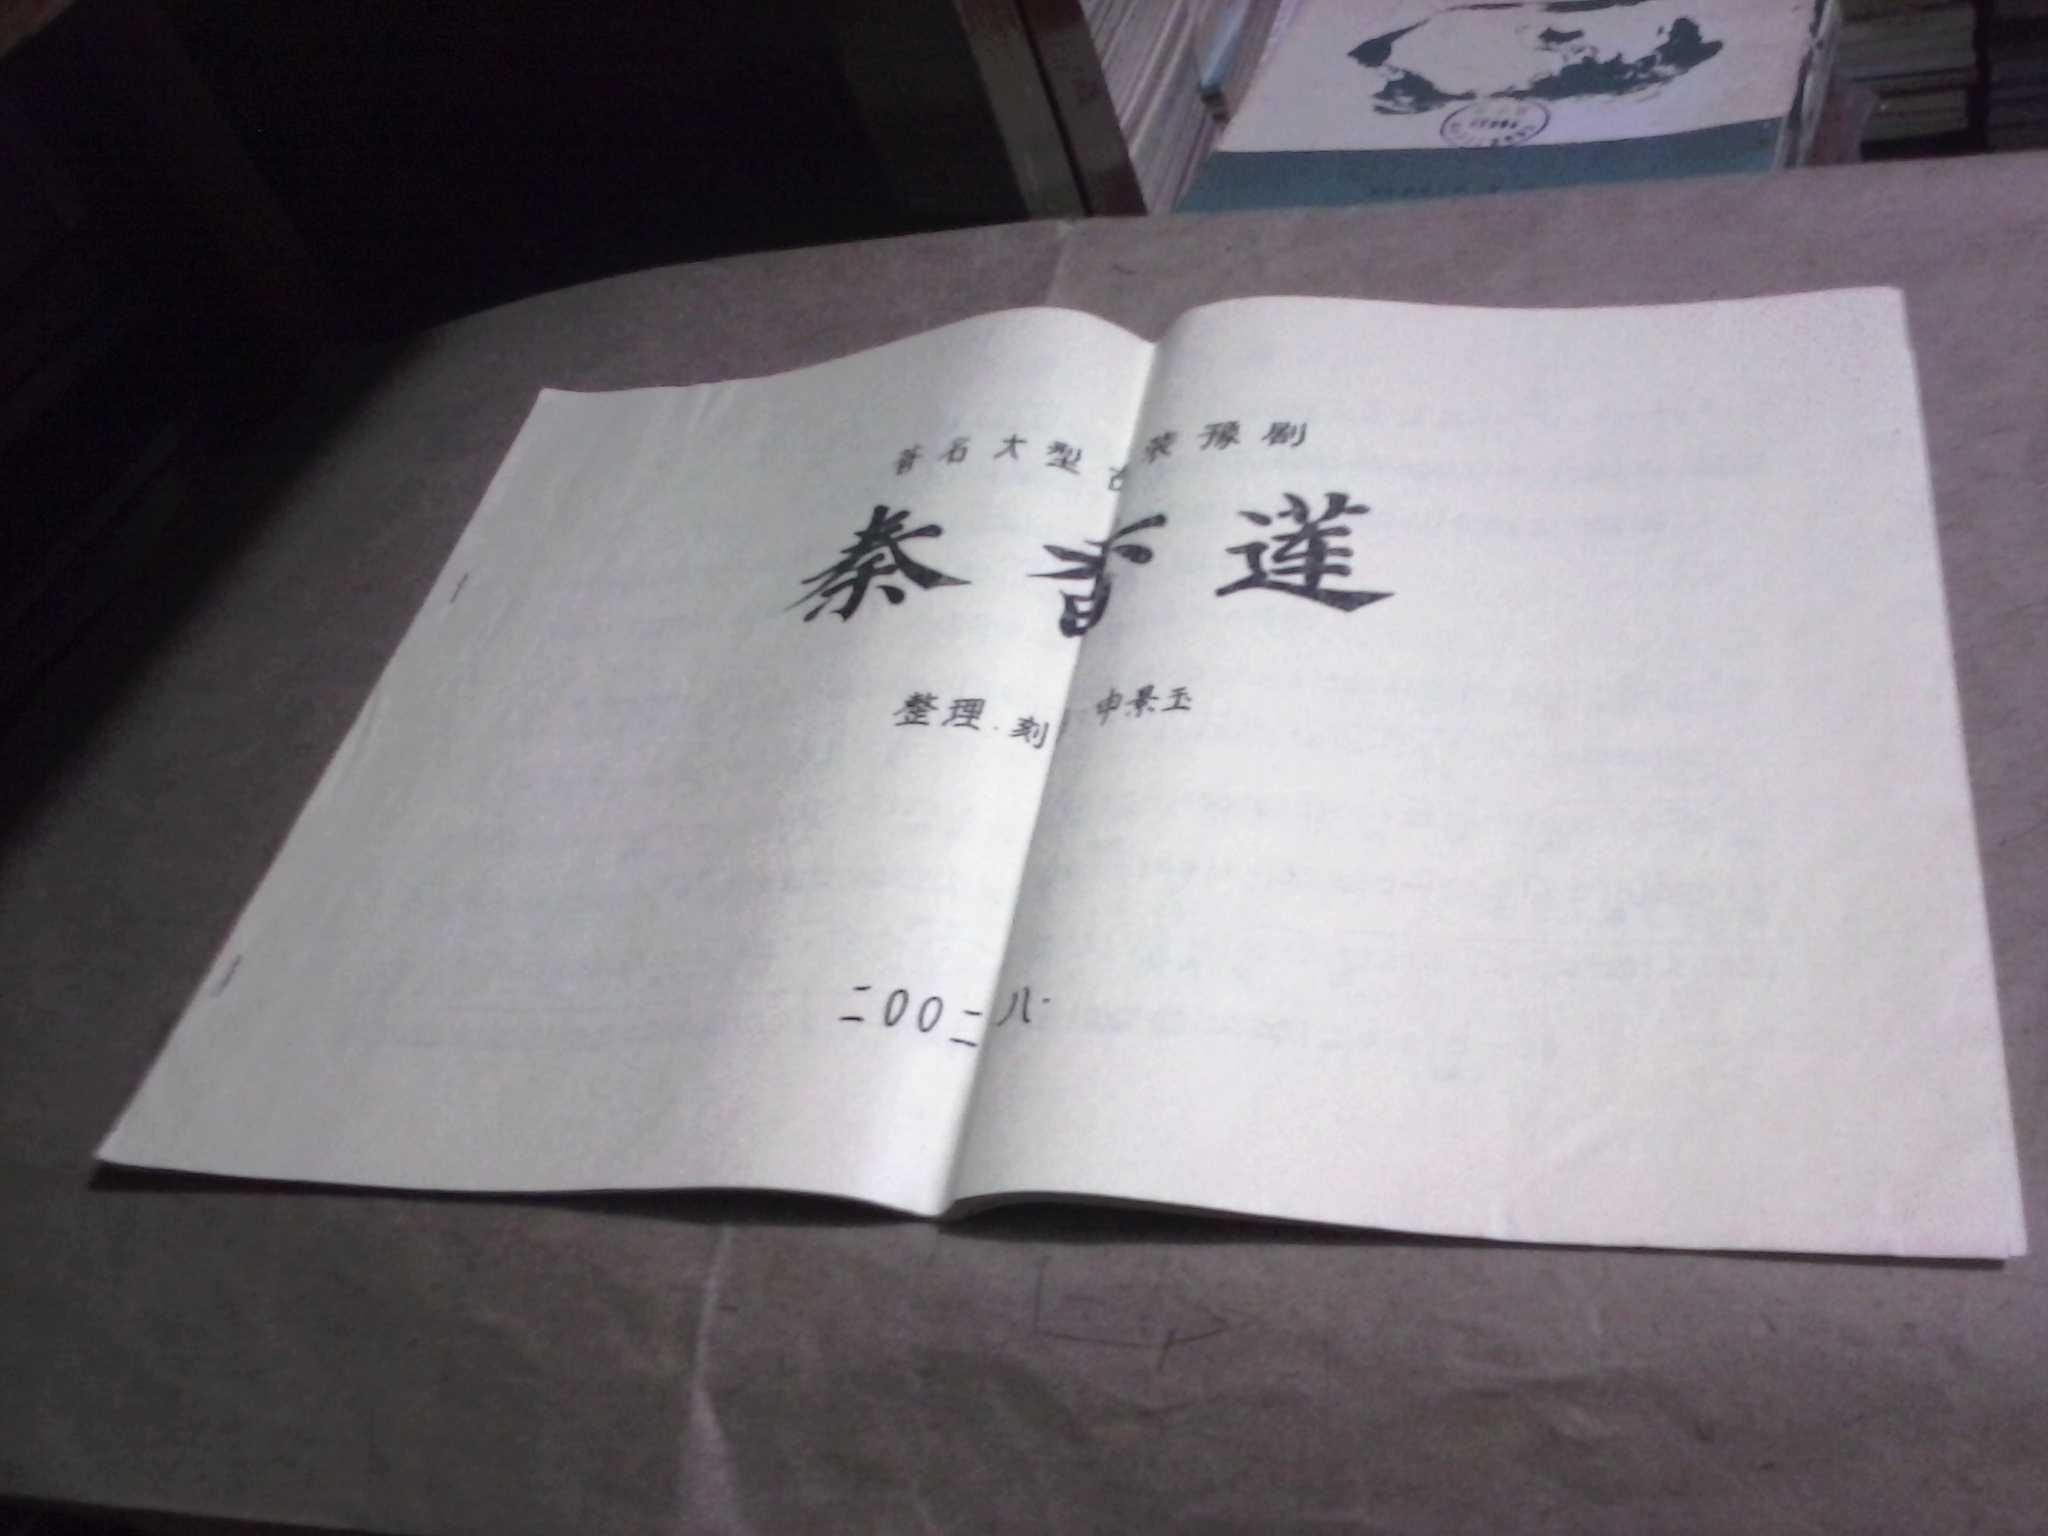 著名大型古装豫剧
秦香莲
整理.刻 申景玉
二00二 八.